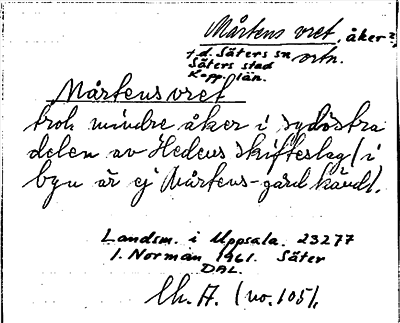 Mårtens vret, åker?,
f.d. Säters sn ortn.
Säters stad
Kopp. län.
Mårtens vret
trol. mindre åker i sydöstra
delen av Hedens skifteslag (i
byn är ej Mårtens-gård känd).
Landsm. i Uppsala. 23277
I. Norman 1961. Säter
DAL.
Ch. A. (no. 105).